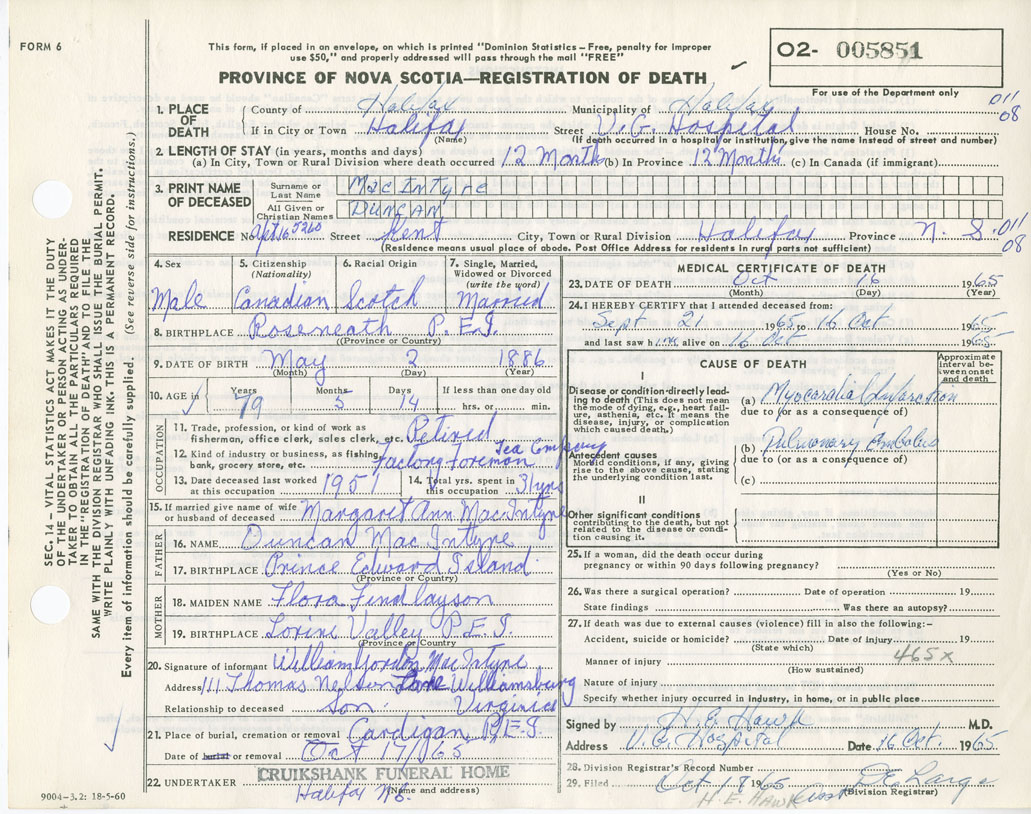 FORM 6
This form, if placed in an envelope, on which is printed "Dominion Statistics – Free, penalty for improper
use $50," and properly addressed will pass through the mail "FREE"
PROVINCE OF NOVA SCOTIA—REGISTRATION OF DEATH
02- 005851
For use of the Department only
011
08
1. PLACE OF DEATH
County of Halifax Municipality of Halifax
If in City or Town Halifax Street V.G. Hospital House No.
(Name) (If death occurred in a hospital or institution, give the name instead of street and number)
2. LENGTH OF STAY (in years, months and days)
(a) In City, Town or Rural Division where death occurred 12 Month (b) In Province 12 Months (c) In Canada (if immigrant)
3. PRINT NAME OF DECEASED
Surname or Last Name MacIntyre
All Given or Christian Names DUNCAN
RESIDENCE No. Apt 16 5260 Street Kent City, Town or Rural Division Halifax Province N. S. 011
08
(Residence means usual place of abode. Post Office Address for residents in rural parts not sufficient)
4. Sex Male
5. Citizenship (Nationality) Canadian
6. Racial Origin Scotch
7. Single, Married, Widowed or Divorced (write the word) Married
8. BIRTHPLACE Roseneath P.E.I.
(Province or Country)
9. DATE OF BIRTH May 2 1886
(Month) (Day) (Year)
10. AGE in Years 79 Months 5 Days 14 If less than one day old hrs. or min.
OCCUPATION
11. Trade, profession, or kind of work as
fisherman, office clerk, sales clerk, etc. Retired
12. Kind of industry or business, as fishing,
bank, grocery store, etc. Factory Foreman Tea Company
13. Date deceased last worked at this occupation 1951
14. Total yrs. spent in this occupation 31 yrs
15. If married give name of wife
or husband of deceased Margaret Ann MacIntyre
FATHER
16. NAME Duncan MacIntyre
17. BIRTHPLACE Prince Edward Island
(Province or Country)
MOTHER
18. MAIDEN NAME Flora Findlayson
19. BIRTHPLACE Lorine Valley P.E.I.
(Province or Country)
20. Signature of informant William Gordon MacIntyre
Address 111 Thomas Nelson Lane Williamsburg
Relationship to deceased Son Virginia
21. Place of burial, cremation or removal Cardigan P.E.I.
Date of burial or removal Oct 17/65
22. UNDERTAKER CRUIKSHANK FUNERAL HOME
Halifax N.S.
(Name and address)
9004-3.2: 18-5-60
MEDICAL CERTIFICATE OF DEATH
23. DATE OF DEATH Oct 16 1965
(Month) (Day) (Year)
24. I HEREBY CERTIFY that I attended deceased from:
Sept 21 1965 to 16 Oct 1965
and last saw him alive on 16 Oct 1965
CAUSE OF DEATH
Approximate interval between onset and death
I
Disease or condition directly leading to death (This does not mean the mode of dying, e.g., heart failure, asthenia, etc. It means the disease, injury, or complication which caused death.)
(a) Myocardial Infarction
due to (or as a consequence of)
Antecedent causes
Morbid conditions, if any, giving rise to the above cause, stating the underlying condition last.
(b) Pulmonary Embolus
due to (or as a consequence of)
(c)
II
Other significant conditions
contributing to the death, but not related to the disease or condition causing it.
25. If a woman, did the death occur during
pregnancy or within 90 days following pregnancy?
(Yes or No)
26. Was there a surgical operation? Date of operation 19
State findings Was there an autopsy?
27. If death was due to external causes (violence) fill in also the following:-
Accident, suicide or homicide? Date of injury 19
(State which)
465x
Manner of injury
(How sustained)
Nature of injury
Specify whether injury occurred in industry, in home, or in public place
Signed by H.E. Hawk M.D.
Address V.G. Hospital Date 16 Oct. 1965
28. Division Registrar's Record Number
29. Filed Oct 18 1965
(Division Registrar)
H. E. HAWK
SEC. 14 - VITAL STATISTICS ACT MAKES IT THE DUTY
OF THE UNDERTAKER OR PERSON ACTING AS UNDER-
TAKER TO OBTAIN ALL THE PARTICULARS REQUIRED
IN THE "REGISTRATION OF DEATH" AND TO FILE THE
SAME WITH THE DIVISION REGISTRAR WHO SHALL ISSUE THE BURIAL PERMIT.
WRITE PLAINLY WITH UNFADING INK. THIS IS A PERMANENT RECORD.
Every item of information should be carefully supplied. (See reverse side for instructions.)